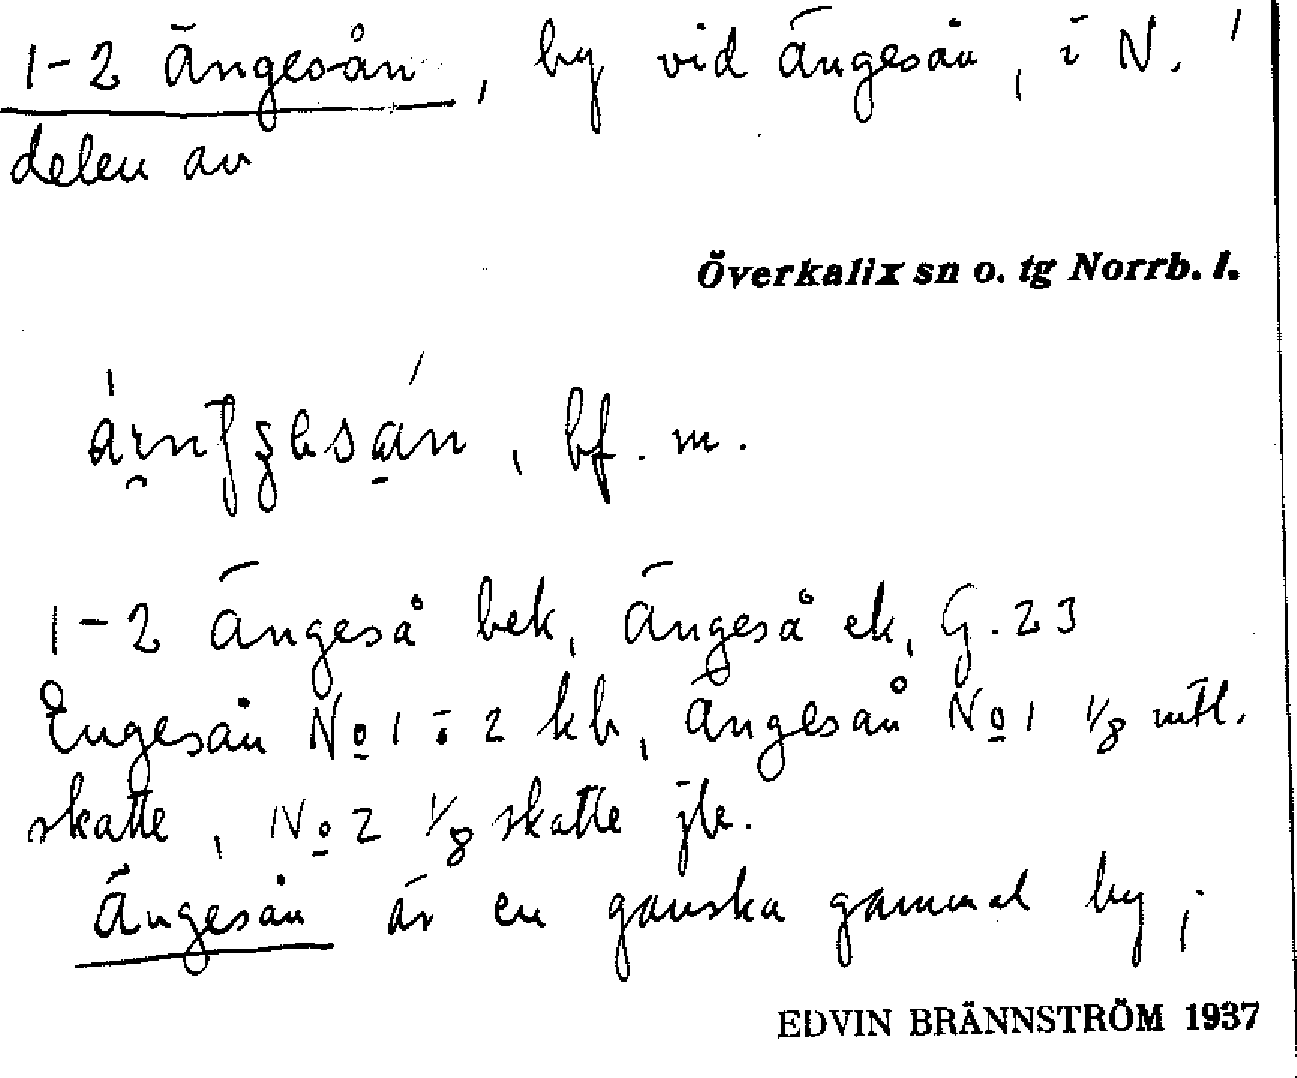 1-2 Ängesån, by vid Ängesån, i N.
delen av
Överkalix sn o. tg Norrb. l.
, bf. m.
1-2 Ängeså bek, Ängeså ek, G. 23
Engesån No 1 o 2 kb, Ängesån No 1 1/8 mtl.
skatte, No 2 1/8 skatte jb.
Ängesån är en ganska gammal by;
EDVIN BRÄNNSTRÖM 1937